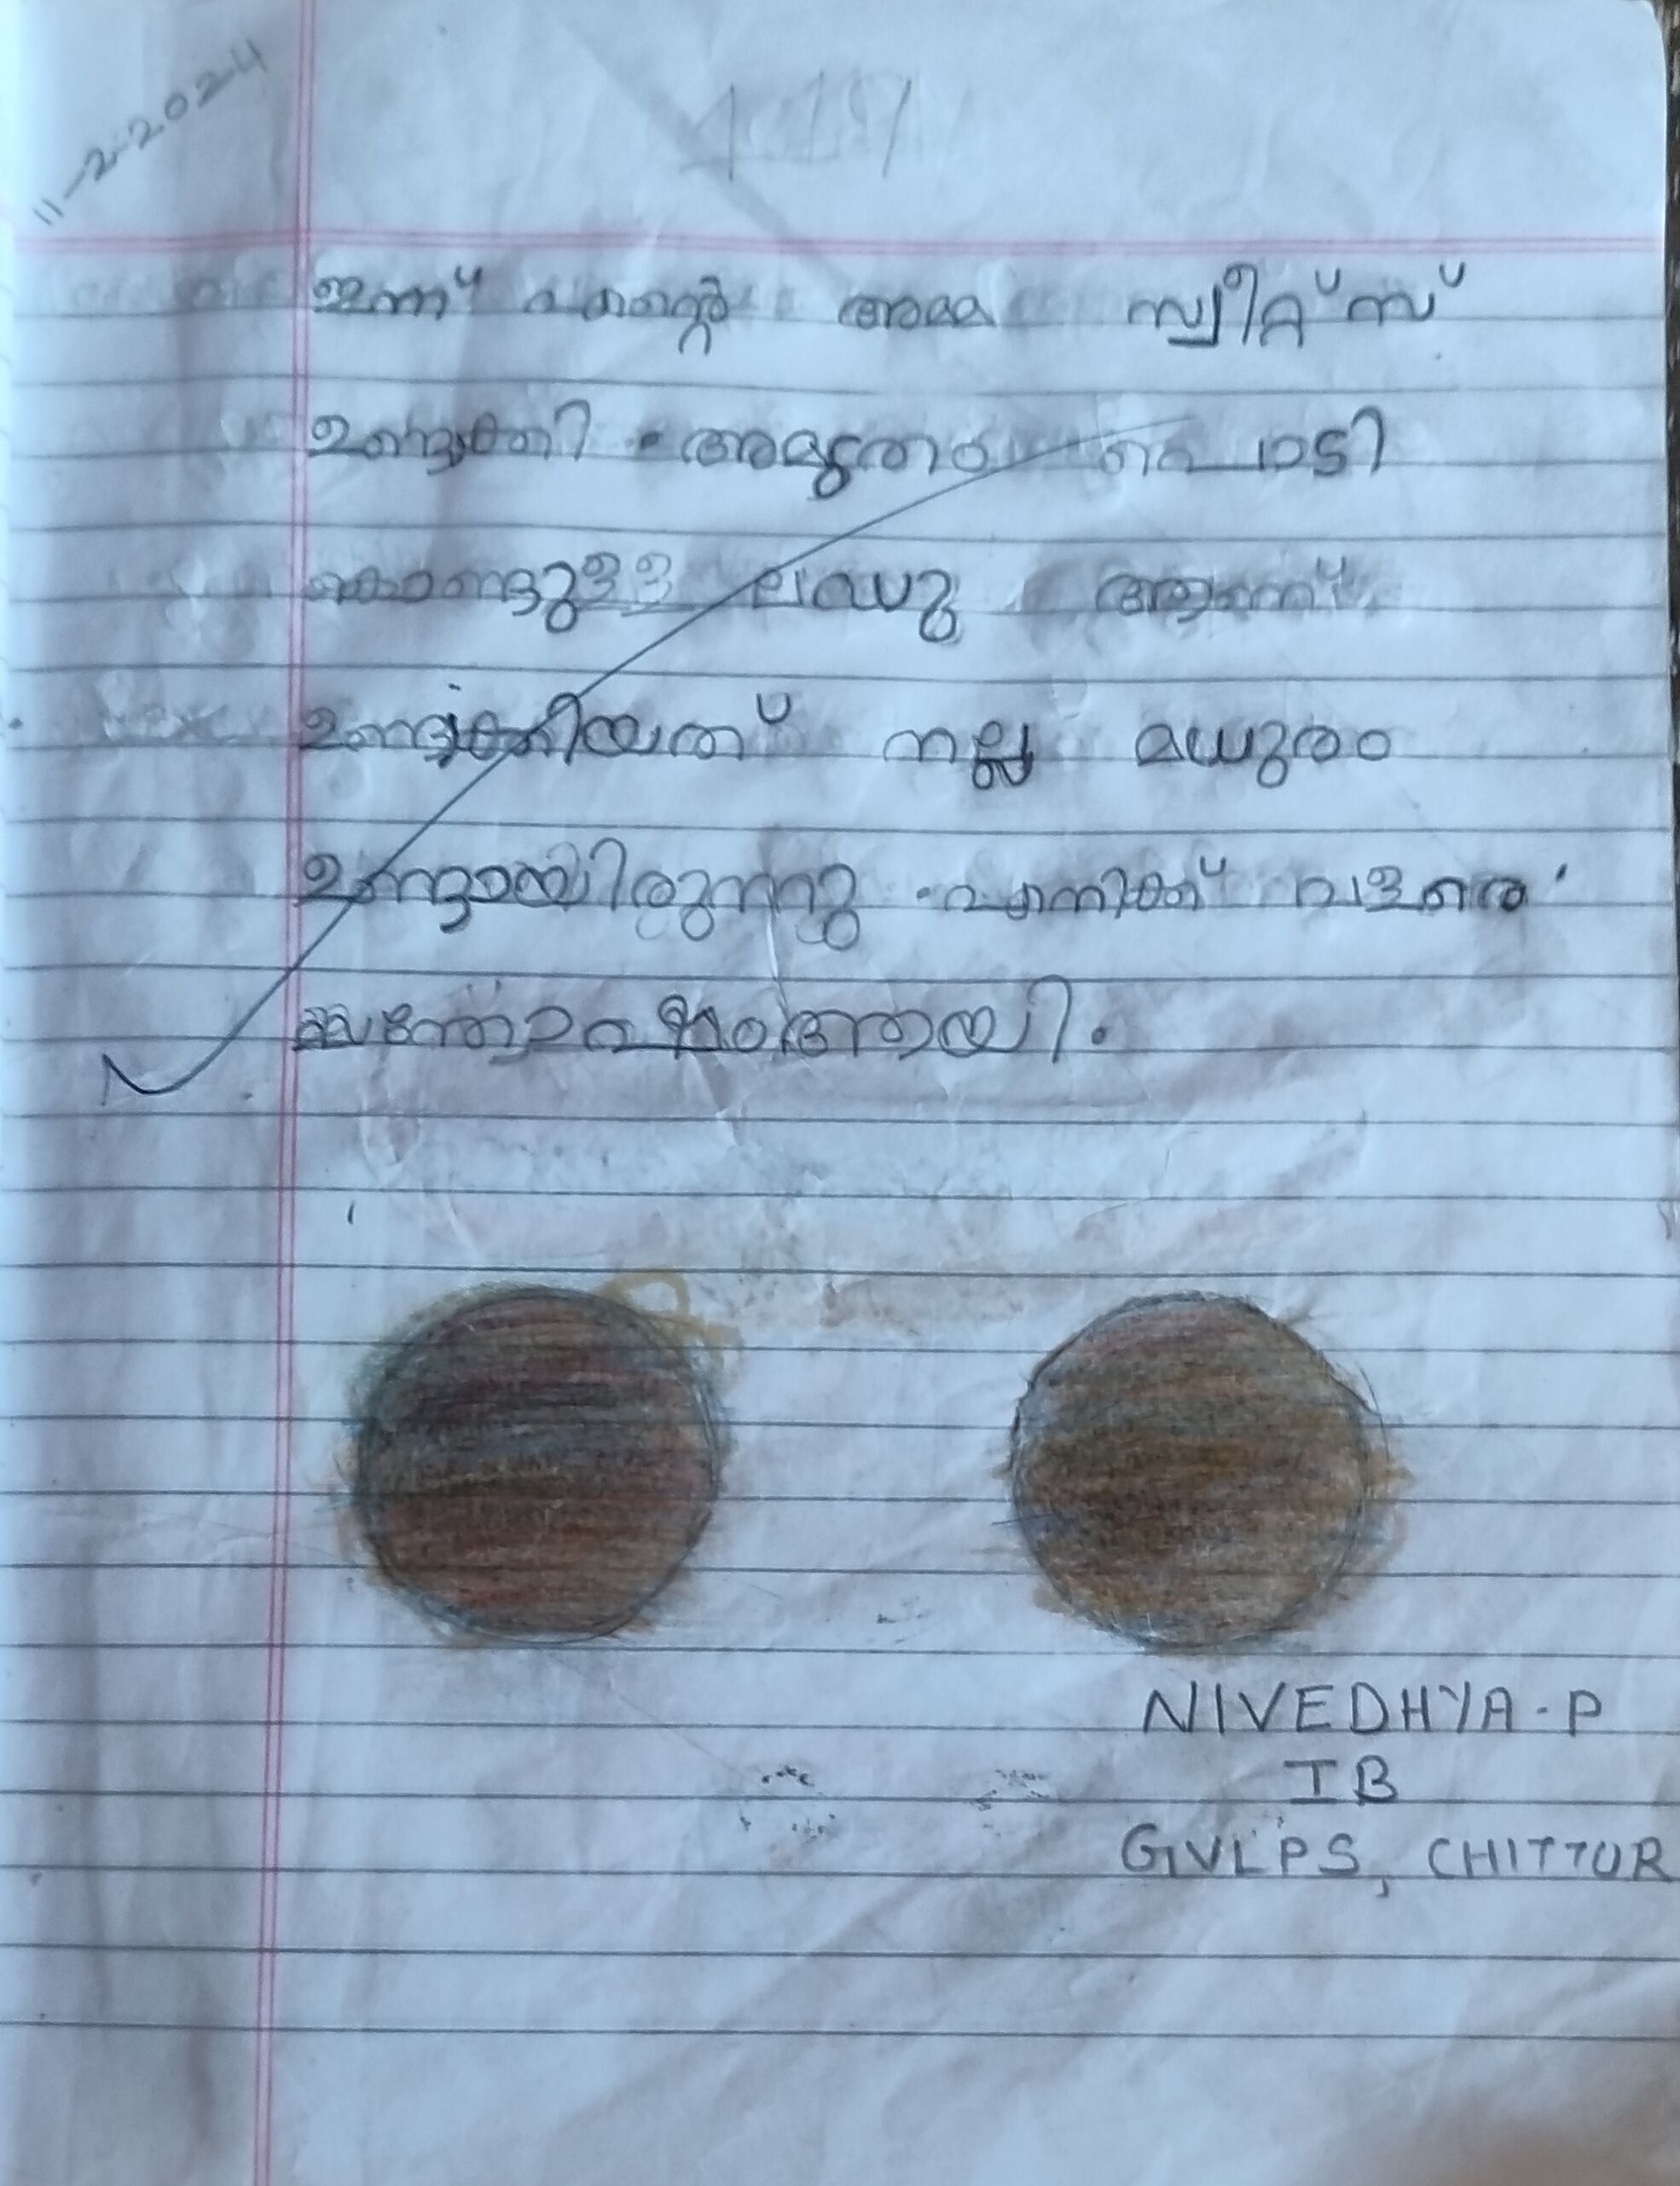 11-2-2024
ഇന്ന് എന്റെ അമ്മ സ്വീറ്റ്സ്
ഉണ്ടാക്കി . അമൃതം പൊടി
കൊണ്ടുള്ള ലഡു ആണ്
ഉണ്ടാക്കിയത് നല്ല മധുരം
ഉണ്ടായിരുന്നു . എനിക്ക് വളരെ
സന്തോഷം ആയി .
NIVEDHYA . P
I B
GVLPS, CHITTUR